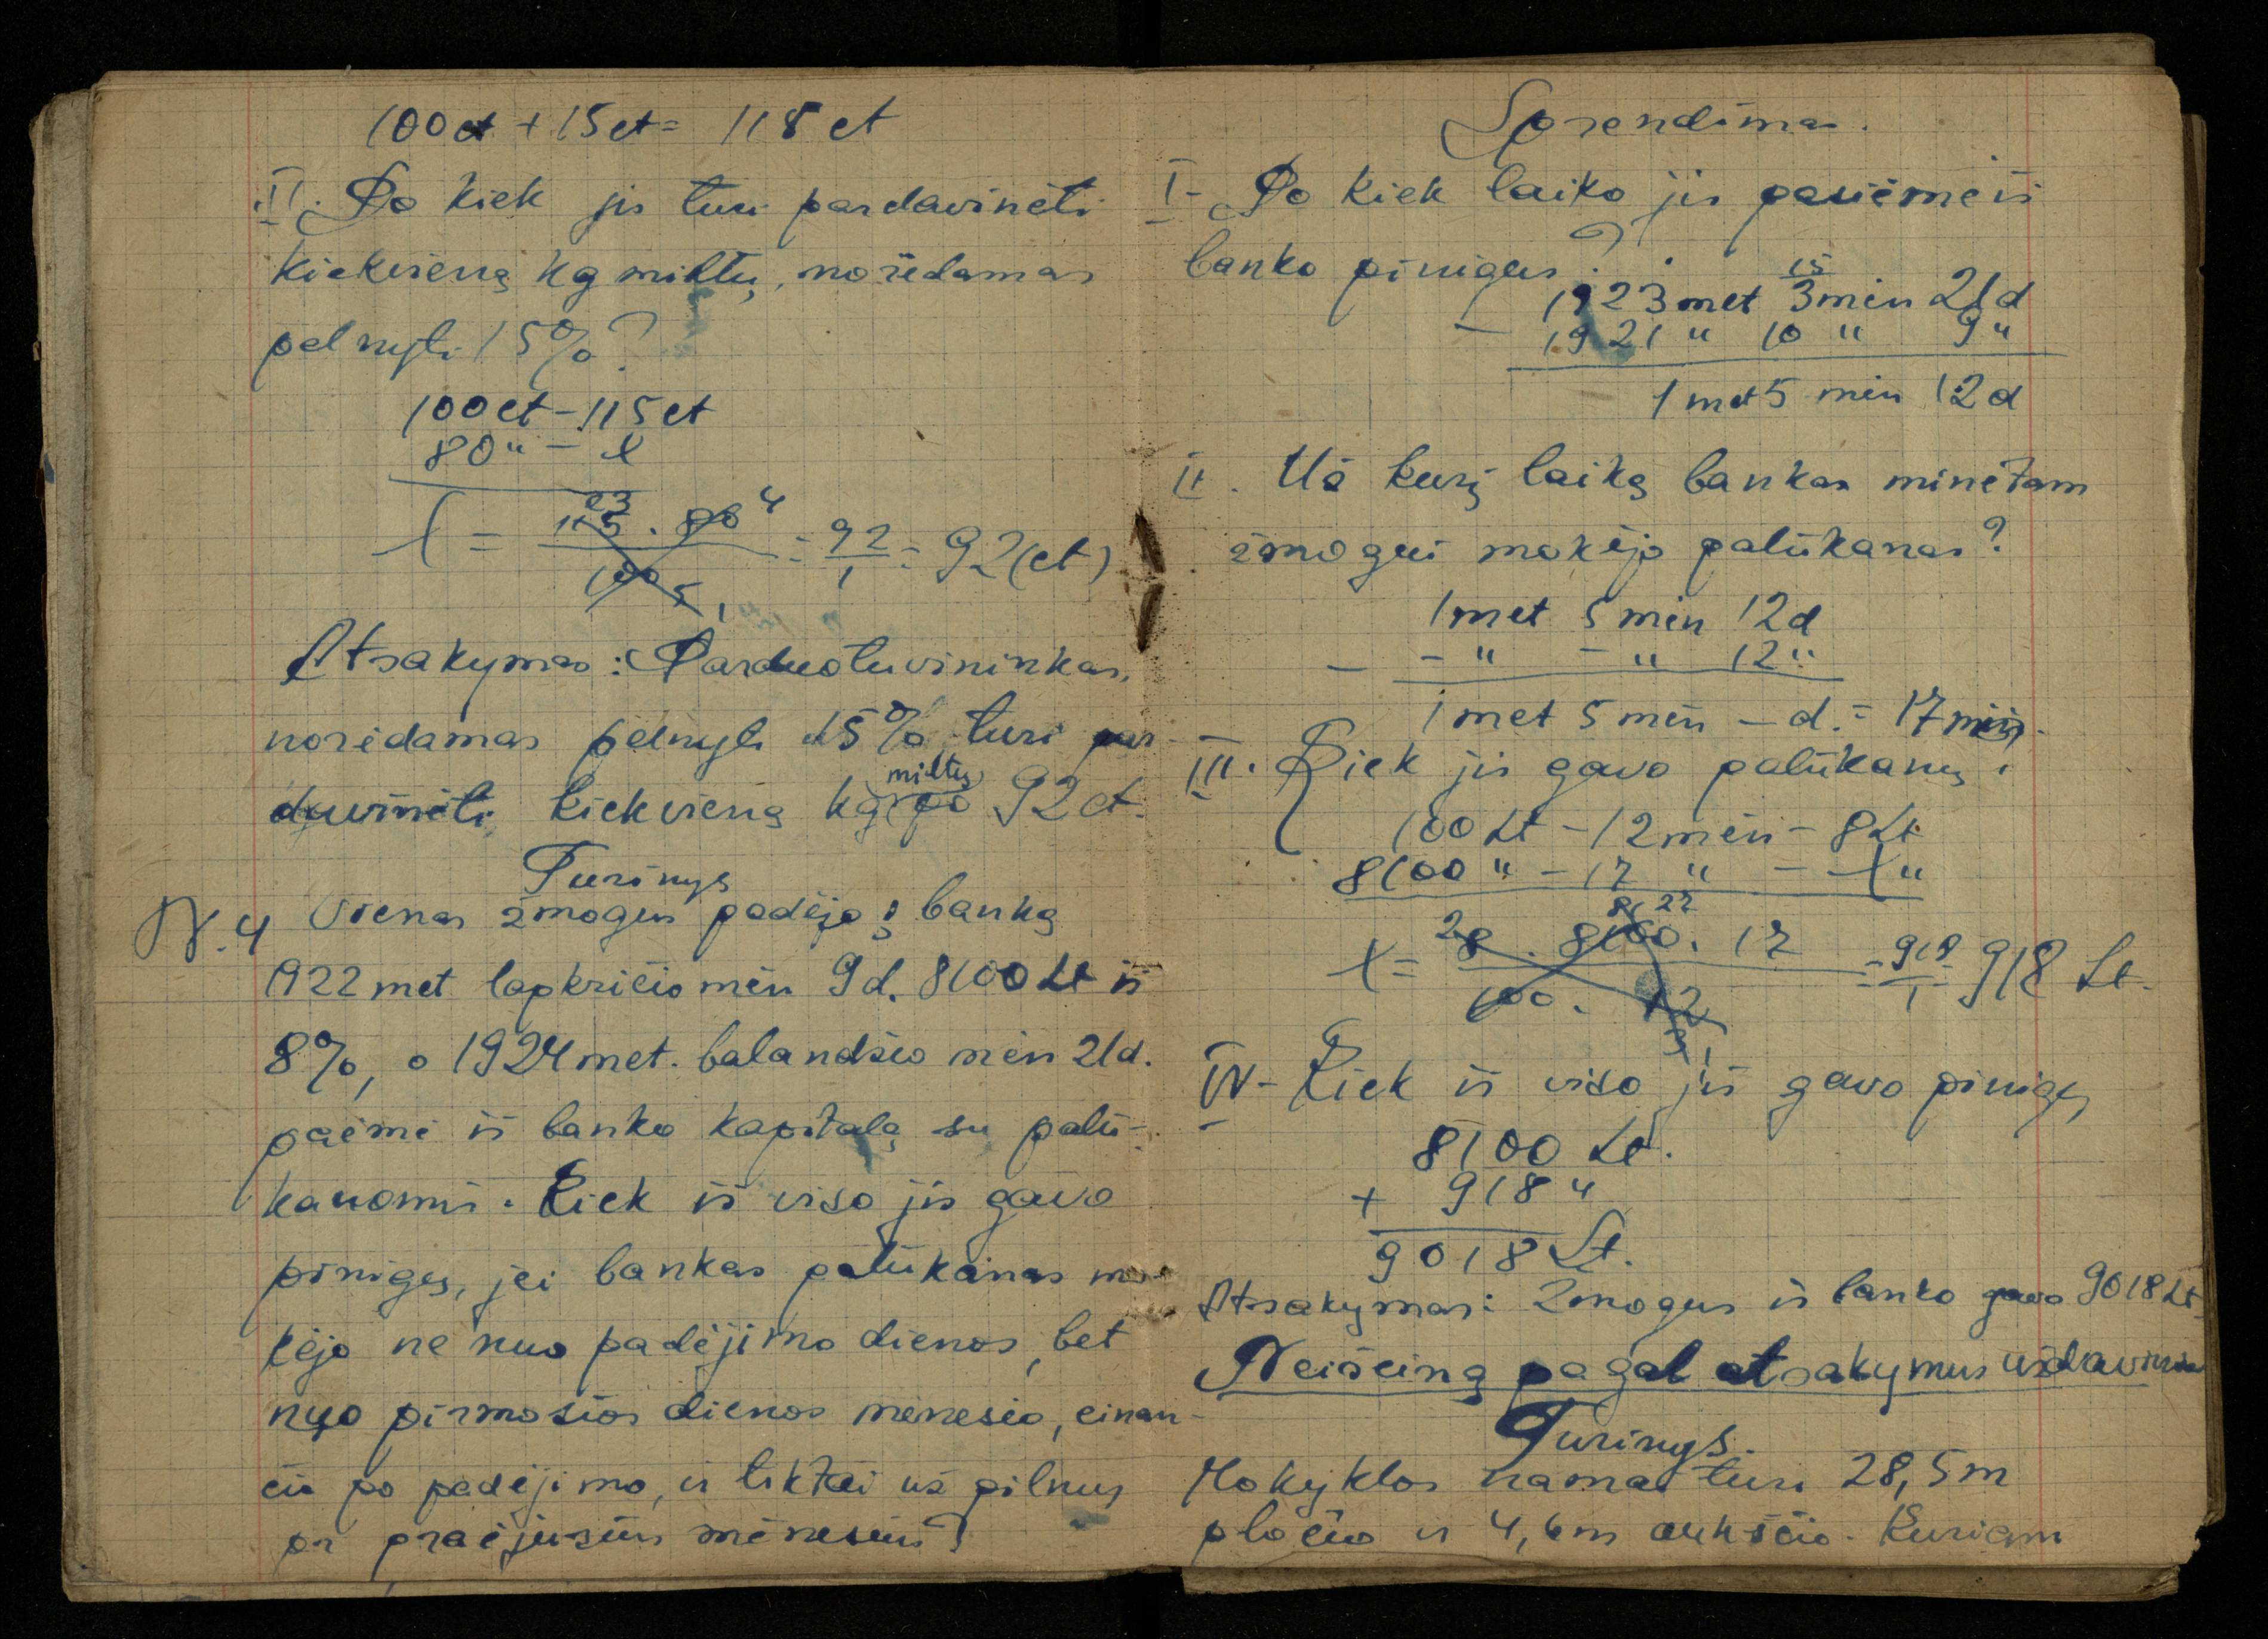 100ct + 15ct = 115 ct
II. Po kiek jis turi pardavinėti
kiekvieną kg miltų, norėdamas
pelnyti 15%?
100ct – 115ct
80 " – x
x = 115 · 80 / 100 = 92/1 = 92(ct)
23 4
5 1
Atsakymas: Parduotuvininkas,
norėdamas pelnyti 15% turi par-
davinėti kiekvieną kg miltų po 92 ct.
Turinys
N.4 Vienas žmogus padėjo į banką
1922 met lapkričio mėn 9d. 8100 Lt iš
8%, o 1924 met. balandžio mėn 21d.
paėmė iš banko kapitalą su palū-
kanomis. Kiek iš viso jis gavo
pinigų, jei bankas palūkanas mo-
kėjo ne nuo padėjimo dienos, bet
nuo pirmosios dienos mėnesio, einan-
čio po padėjimo, ir tiktai už pilnus
pr praėjusius mėnesius?
Sprendimas.
I- Po kiek laiko jis pasiėmė iš
banko pinigus?
15
1923 met 3 mėn 21d
– 1921 " 10 " 9 "
1 met 5 mėn 12d
II. Už kurį laiką bankas minėtam
žmogui mokėjo palūkanas?
1 met 5 mėn 12d
– - " - " 12 "
1 met 5 mėn – d. = 17 mėn.
III. Kiek jis gavo palūkanų.
100 Lt – 12 mėn – 8 Lt
8100 " – 17 " – x "
x = 8 · 8100 · 17 / 100 · 12 = 918/1 = 918 Lt.
2 81 27
3 1
IV- Kiek iš viso jis gavo pinigų
8100 Lt.
+ 918 "
9018 Lt.
Atsakymas: Žmogus iš banko gavo 9018 Lt
Neišeina pagal atsakymus uždavinis
Turinys.
Mokyklos namas turi 28,5 m
pločio ir 4,6 m aukščio. Kuriam